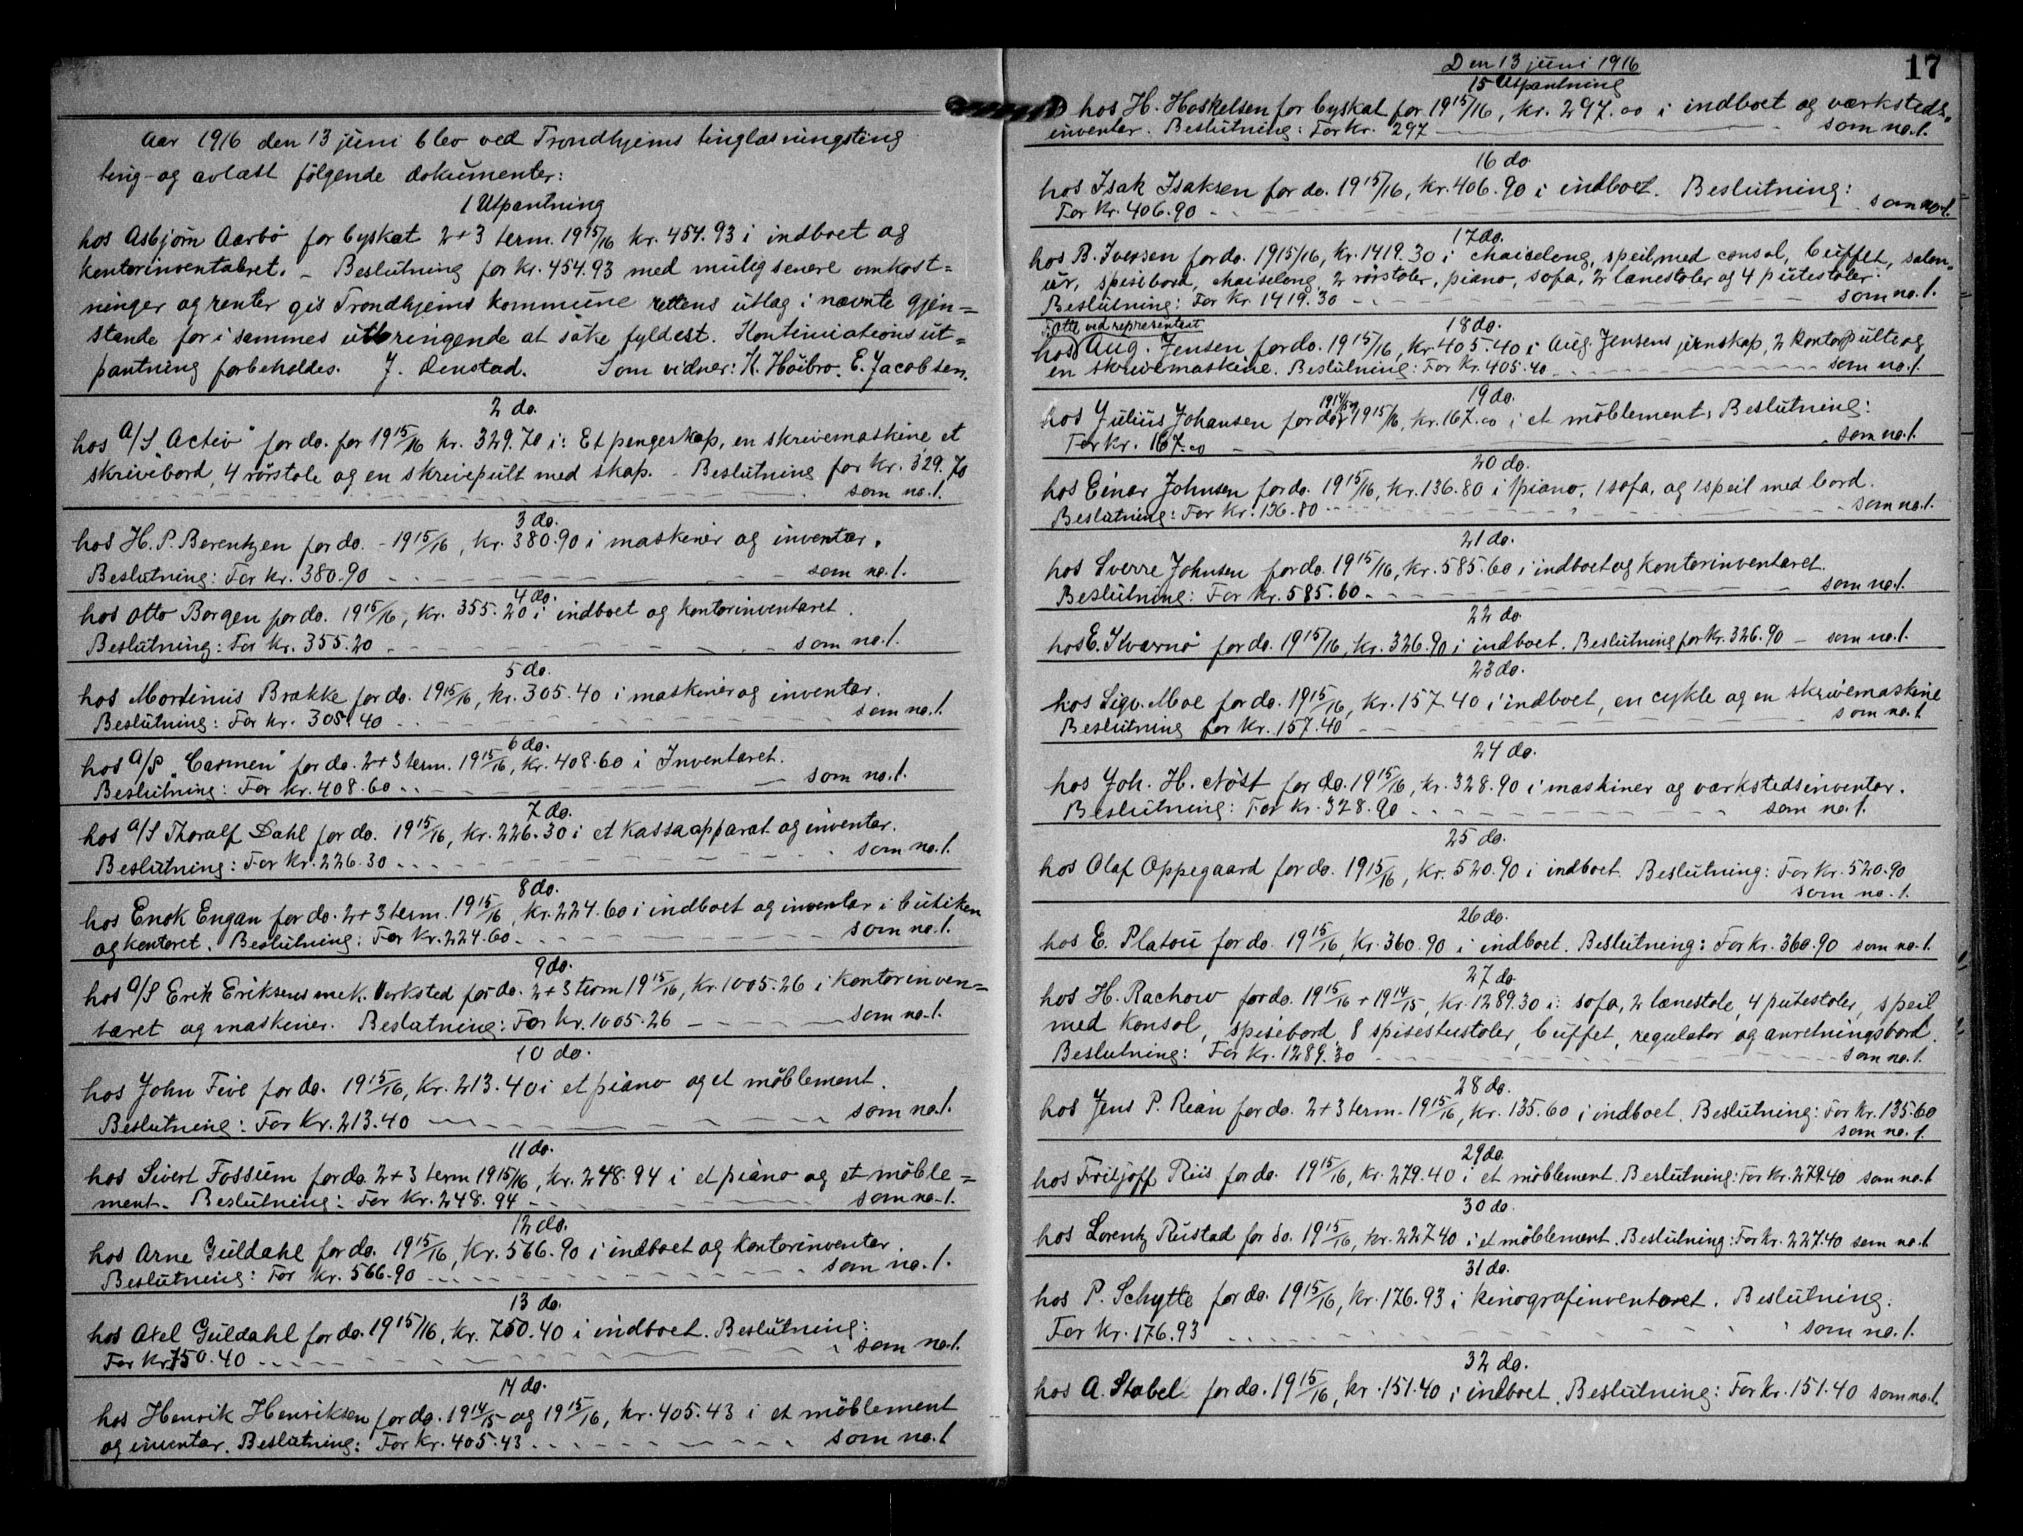 Aar 1916 den 13 juni blev ved Trondhjems tinglæsningsting
ting- og avlæst følgende dokumenter:
1 Utpantning
hos Asbjørn Aarbö for byskat 2+3 term. 1915/16 kr. 454.93 i indboet og
kontorinventaret. – Beslutning for kr. 454.93 med mulig senere omkost=
ninger og renter gis Trondhjems kommune rettens utlæg i nævnte gjen=
stande for i sammes utbringende at søke fyldest. Kontinuationsut=
pantning forbeholdes. J. Renstad. Som vidner: K. Höibro. E. Jacobsen.
2 do.
hos A/S "Activ" for do. for 1915/16 kr. 329.70 i: Et pengeskap, en skrivemaskine et
skrivebord, 4 rörstole og en skrivepult med skap. – Beslutning for kr. 329.70
som no. 1.
3 do.
hos H. P. Berentzen for do. - 1915/16, kr. 380.90 i maskiner og inventar.
Beslutning: For kr. 380.90 som no. 1.
4 do.
hos Otto Borgen for do. 1915/16, kr. 355.20 i indboet og kontorinventaret.
Beslutning: For kr. 355.20 som no. 1.
5 do.
hos Mortinius Brække for do. 1915/16, kr. 305.40 i maskiner og inventar.
Beslutning: For kr. 305.40 som no. 1.
6 do.
hos A/S "Carmen" for do. 2+3 term. 1915/16, kr. 408.60 i Inventaret.
Beslutning: For kr. 408.60 som no. 1.
7 do.
hos A/S Thoralf Dahl for do. 1915/16, kr. 226.30 i et kassaapparat og inventar.
Beslutning: For kr. 226.30 som no. 1.
8 do.
hos Enok Engan for do. 2+3 term. 1915/16, kr. 224.60 i indboet og inventar i butiken
og kontoret. Beslutning: For kr. 224.60 som no. 1.
9 do.
hos A/S Erik Eriksens mek. Verksted for do. 2+3 term 1915/16, kr. 1005.26 i kontorinven=
taret og maskiner. Beslutning: For kr. 1005.26 som no. 1.
10 do.
hos John Five for do. 1915/16, kr. 213.40 i et piano og et möblement.
Beslutning: For kr. 213.40 som no. 1.
11 do.
hos Sivert Fossum for do. 2+3 term 1915/16, kr. 248.94 i et piano og et möble=
ment. Beslutning: For kr. 248.94 som no. 1.
12 do.
hos Arne Guldahl for do. 1915/16, kr. 566.90 i indboet og kontorinventar.
Beslutning: For kr. 566.90 som no. 1.
13 do.
hos Axel Guldahl for do. 1915/16, kr. 750.40 i indboet. Beslutning:
For kr 750.40 som no. 1.
14 do.
hos Henrik Henriksen for do. 1914/15 og 1915/16, kr. 405.43 i et möblement
og inventar. Beslutning: For kr. 405.43 som no. 1
Den 13 juni 1916
17
15 Utpantning
hos H. Haskelsen for byskat for 1915/16, kr. 297.00 i indboet og værksteds-
inventar. Beslutning: For kr. 297 som no. 1.
16 do
hos Isak Isaksen for do. 1915/16, kr. 406.90 i indboet. Beslutning:
For kr. 406.90 som no. 1.
17 do.
hos B. Iversen for do. 1915/16, kr. 1419.30 i chaiselong, speil med consol, buffet, salon-
ur, spisebord, chaiselong, 2 rörstoler, piano, sofa, 2 lænestoler og 4 putestoler.
Beslutning: For kr 1419.30 som no. 1.
Otto ved repræsentant
18 do.
hos Aug. Jensen for do. 1915/16, kr. 405.40 i Aug. Jensens jernskap, 2 kontorpulte og
en skrivemaskine. Beslutning: For kr. 405.40 som no. 1.
19 do.
hos Julius Johansen for do. 1914/15 og 1915/16, kr. 167.00 i et möblement. Beslutning:
For kr. 167.00 som no. 1.
20 do.
hos Einar Johnsen for do. 1915/16, kr. 136.80 i 1 piano, 1 sofa, og 1 speil med bord.
Beslutning: For kr. 136.80 som no. 1.
21 do.
hos Sverre Johnsen for do. 1915/16, kr. 585.60 i indboet og kontorinventaret.
Beslutning: For kr. 585.60 som no. 1.
22 do.
hos E. Kvarnö for do. 1915/16, kr. 326.90 i indboet. Beslutning for kr. 326.90 – som no. 1.
23 do.
hos Sigv. Moe for do. 1915/16, kr. 157.40 i indboet, en cykle og en skrivemaskine
Beslutning for kr. 157.40 som no. 1
24 do.
hos Joh. H. Nöst for do. 1915/16, kr. 328.90 i maskiner og værkstedsinventar.
Beslutning: For kr. 328.90 som no. 1.
25 do.
hos Olaf Oppegaard for do. 1915/16, kr. 520.90 i indboet. Beslutning: For kr. 520.90
som no. 1.
26 do.
hos E. Platou for do. 1915/16, kr. 360.90 i indboet. Beslutning: For kr. 360.90 som no. 1.
27 do
hos H. Rachow for do. 1915/16 + 1914/15, kr. 1289.30 i: sofa, 2 lænestole, 4 putestoler, speil
med konsol, spisebord, 8 spisestustoler, buffet, regulator og anretningsbord.
Beslutning: For kr. 1289.30 som no. 1.
28 do.
hos Jens P. Rian for do. 2+3 term. 1915/16, kr. 135.60 i indboet. Beslutning: For kr. 135.60
som no. 1.
29 do.
hos Fritjoff Riis for do. 1915/16, kr. 279.40 i et möblement. Beslutning: For kr. 279.40 som no. 1
30 do.
hos Lorentz Rustad for do. 1915/16, kr. 227.40 i et möblement. Beslutning: For kr. 227.40 som no. 1
31 do.
hos P. Schytte for do. 1915/16, kr. 176.93 i kinografinventaret. Beslutning:
For kr. 176.93 som no. 1.
32 do.
hos A. Stabel for do. 1915/16, kr. 151.40 i indboet. Beslutning: For kr. 151.40 som no. 1.